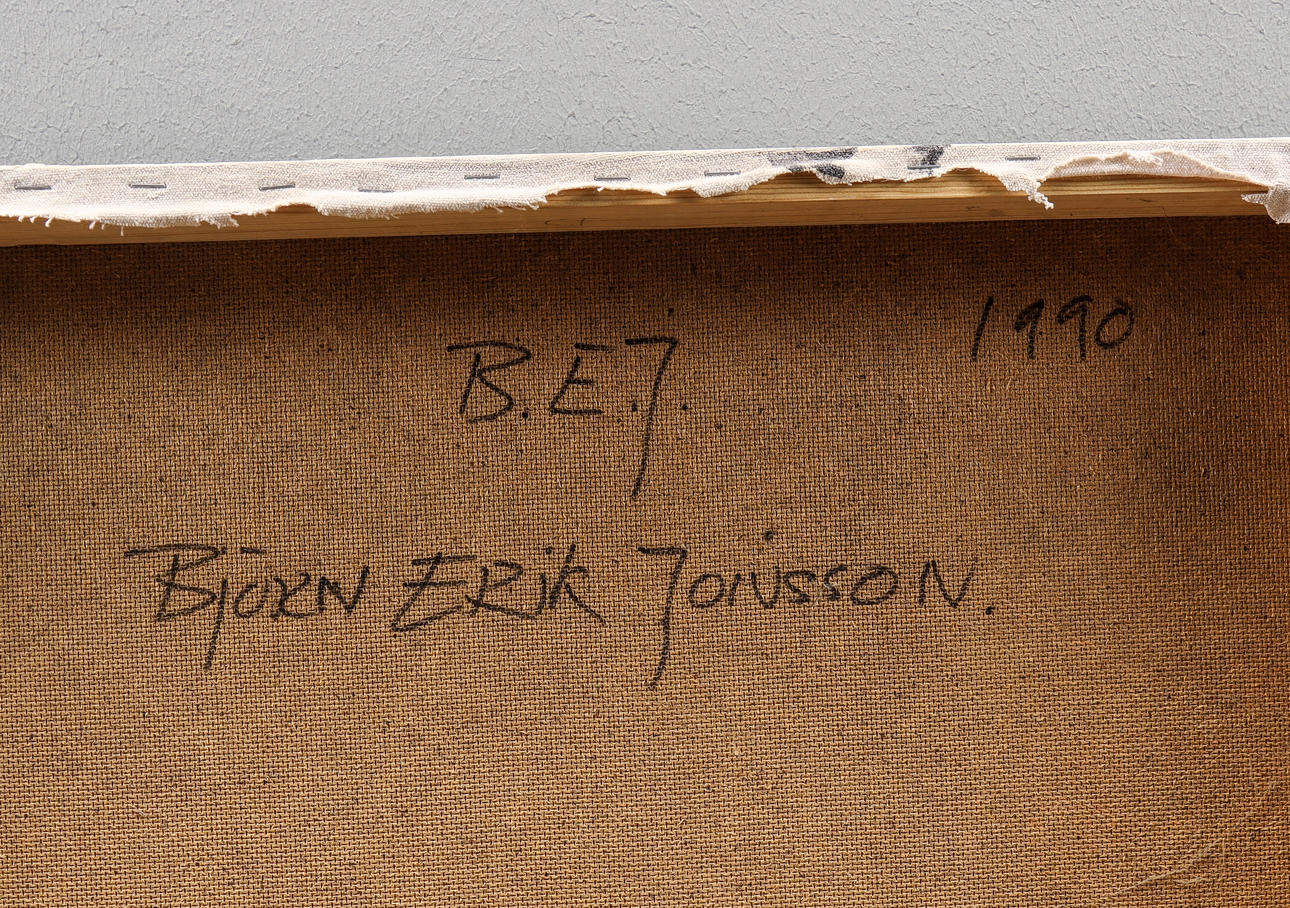 1990
B.E.J.
BJÖRN ERiK JONSSON.